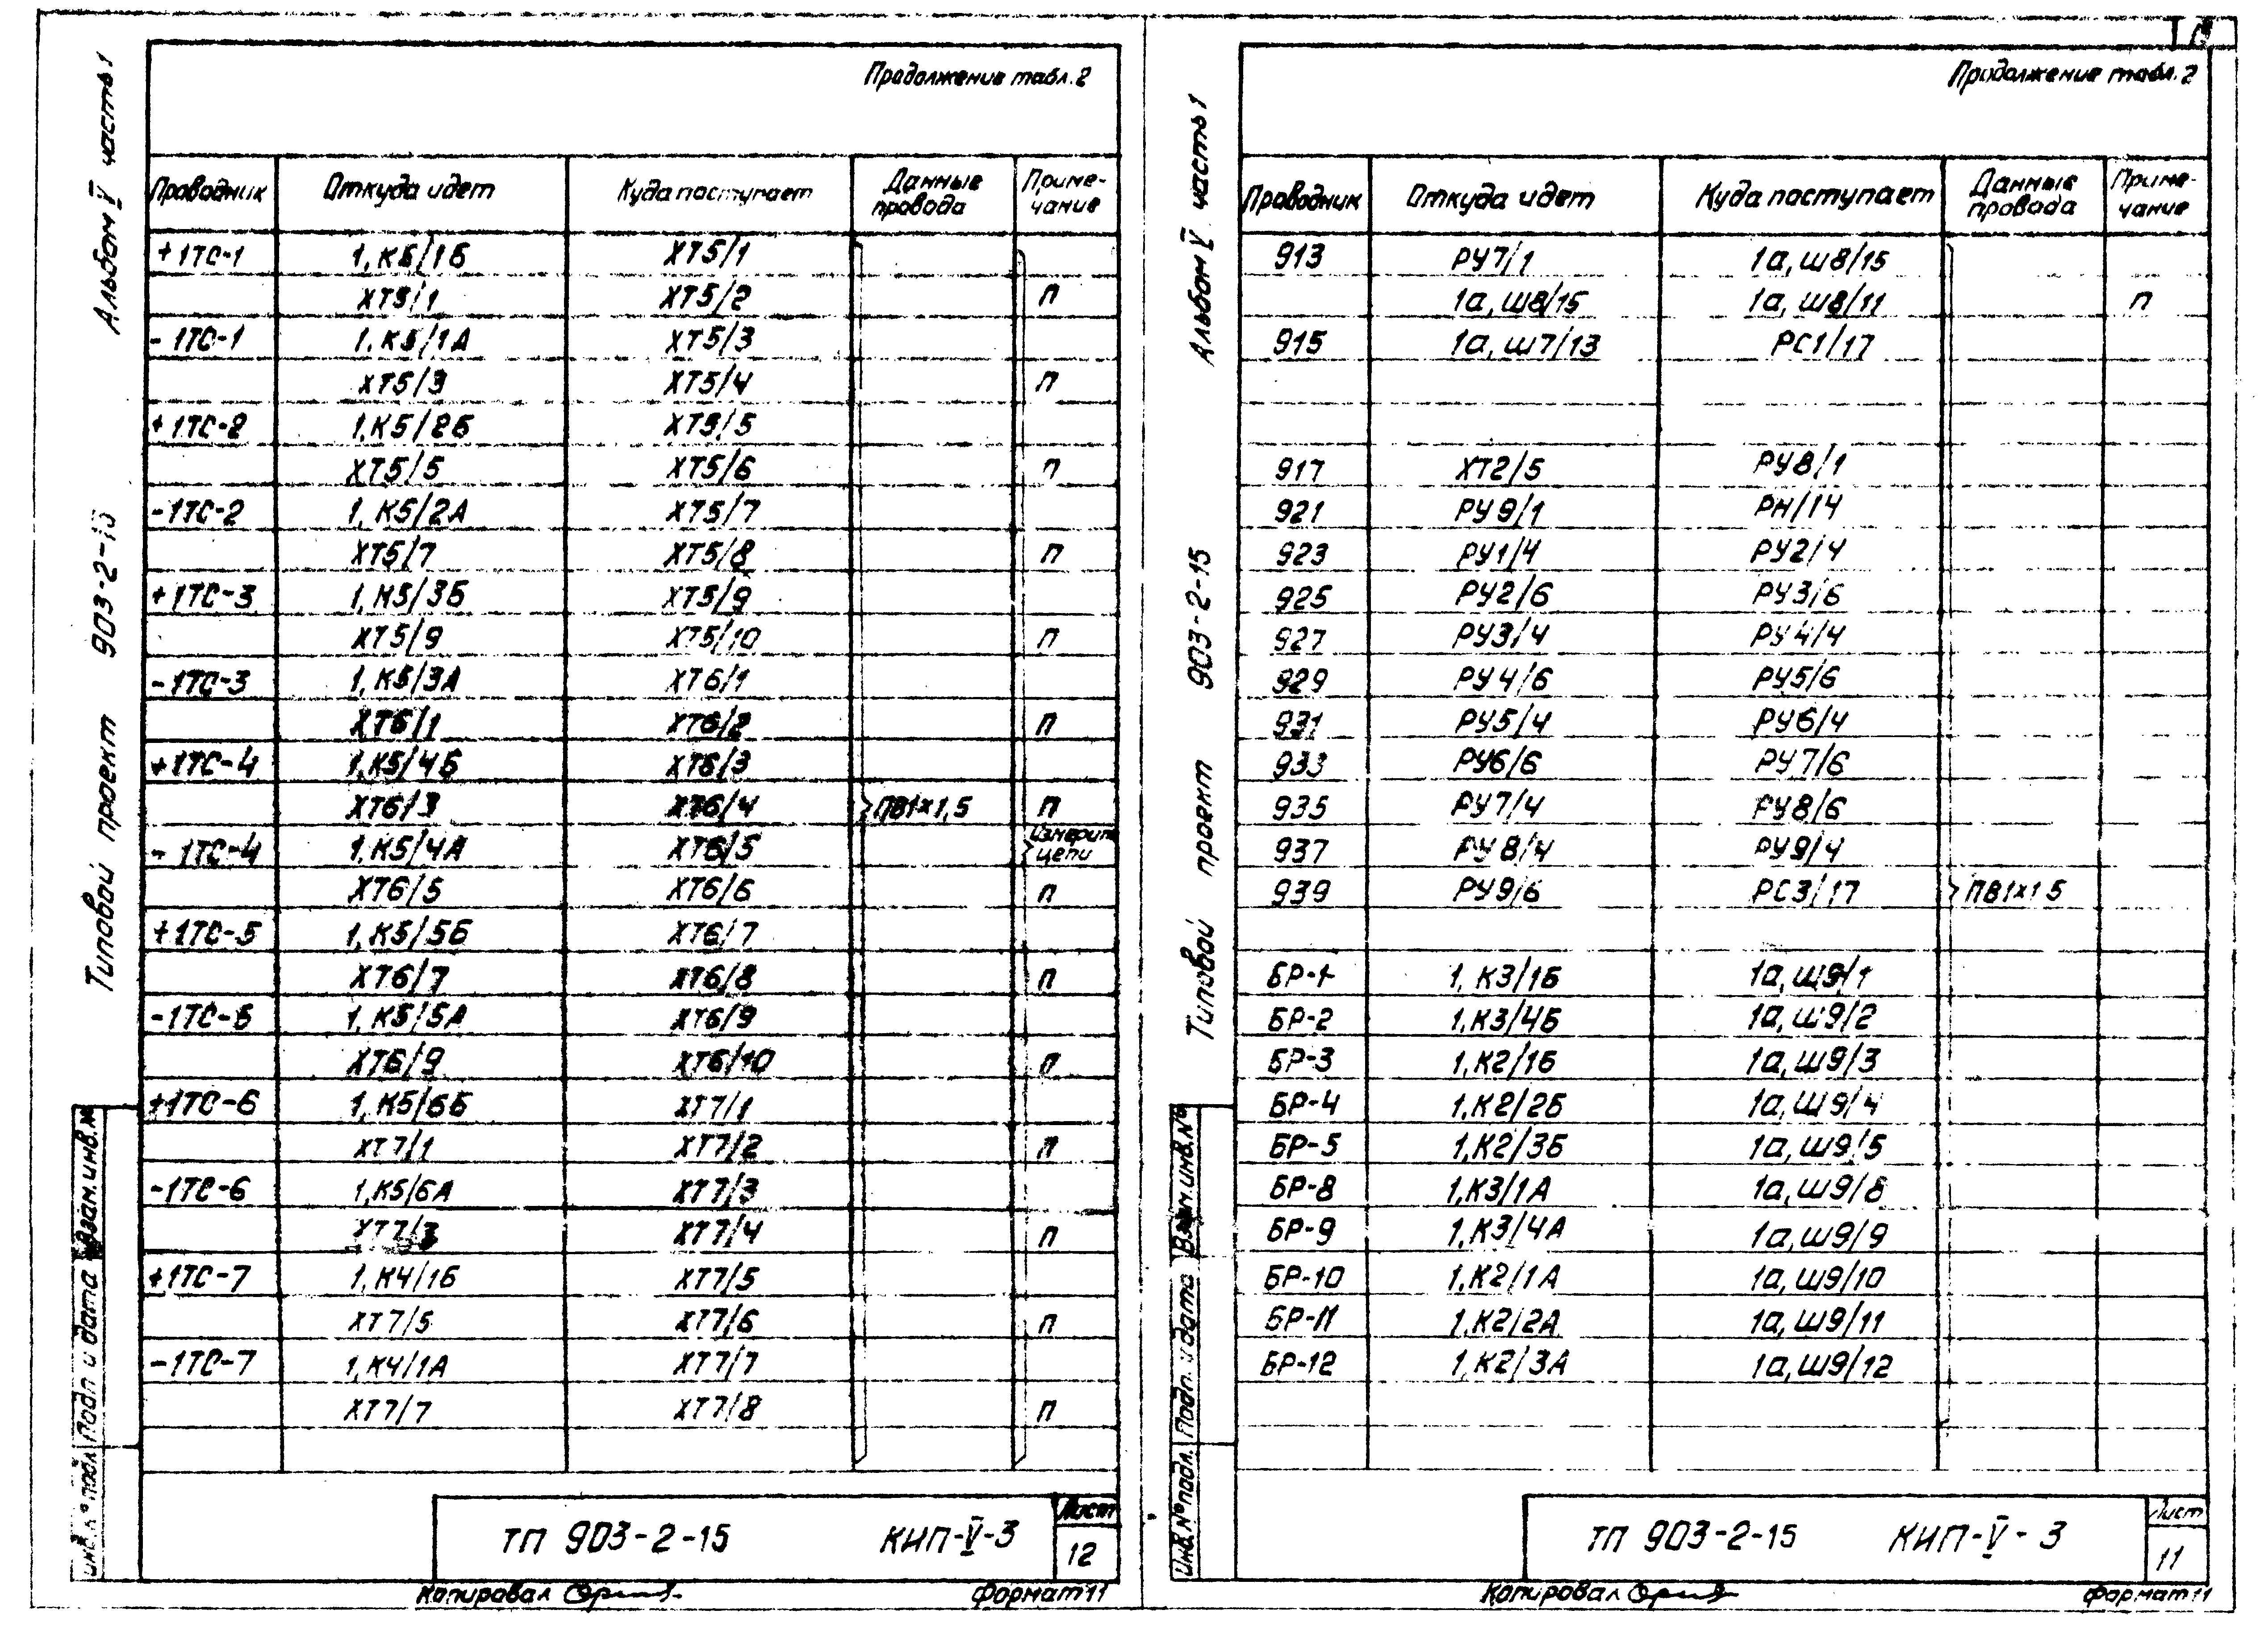 Продолжение табл. 2
Проводник Откуда идет Куда поступает Данные провода Приме-чание
+1ТС-1 1, К5/1Б ХТ5/1
ХТ5/1 ХТ5/2 П
-1ТС-1 1, К5/1А ХТ5/3
ХТ5/3 ХТ5/4 П
+1ТС-2 1, К5/2Б ХТ5/5
ХТ5/5 ХТ5/6 П
-1ТС-2 1, К5/2А ХТ5/7
ХТ5/7 ХТ5/8 П
+1ТС-3 1, К5/3Б ХТ5/9
ХТ5/9 ХТ5/10 П
-1ТС-3 1, К5/3А ХТ6/1
ХТ6/1 ХТ6/2 П
+1ТС-4 1, К5/4Б ХТ6/3
ХТ6/3 ХТ6/4 ПВ1×1,5 П
-1ТС-4 1, К5/4А ХТ6/5 Измерит. цепи
ХТ6/5 ХТ6/6 П
+1ТС-5 1, К5/5Б ХТ6/7
ХТ6/7 ХТ6/8 П
-1ТС-5 1, К5/5А ХТ6/9
ХТ6/9 ХТ6/10 П
+1ТС-6 1, К5/6Б ХТ7/1
ХТ7/1 ХТ7/2 П
-1ТС-6 1, К5/6А ХТ7/3
ХТ7/3 ХТ7/4 П
+1ТС-7 1, К4/1Б ХТ7/5
ХТ7/5 ХТ7/6 П
-1ТС-7 1, К4/1А ХТ7/7
ХТ7/7 ХТ7/8 П
ТП 903-2-15 КИП-V-3 Лист 12
Копировал Формат 11
Альбом V часть 1
Типовой проект 903-2-15
Взам. инв. №
Подп и дата
Инв. № подл
Продолжение табл. 2
Проводник Откуда идет Куда поступает Данные провода Приме-чание
913 РУ7/1 1а, Ш8/15
1а, Ш8/15 1а, Ш8/11 П
915 1а, Ш7/13 РС1/17
917 ХТ2/5 РУ8/1
921 РУ9/1 РН/14
923 РУ1/4 РУ2/4
925 РУ2/6 РУ3/6
927 РУ3/4 РУ4/4
929 РУ4/6 РУ5/6
931 РУ5/4 РУ6/4
933 РУ6/6 РУ7/6
935 РУ7/4 РУ8/6
937 РУ8/4 РУ9/4
939 РУ9/6 РС3/17 ПВ1×1 5
БР-1 1, К3/1Б 1а, Ш9/1
БР-2 1, К3/4Б 1а, Ш9/2
БР-3 1, К2/1Б 1а, Ш9/3
БР-4 1, К2/2Б 1а, Ш9/4
БР-5 1, К2/3Б 1а, Ш9/5
БР-8 1, К3/1А 1а, Ш9/8
БР-9 1, К3/4А 1а, Ш9/9
БР-10 1, К2/1А 1а, Ш9/10
БР-11 1, К2/2А 1а, Ш9/11
БР-12 1, К2/3А 1а, Ш9/12
ТП 903-2-15 КИП-V-3 Лист 11
Копировал Формат 11
Альбом V часть 1
Типовой проект 903-2-15
Взам. инв. №
Подп. и дата
Инв. № подл.